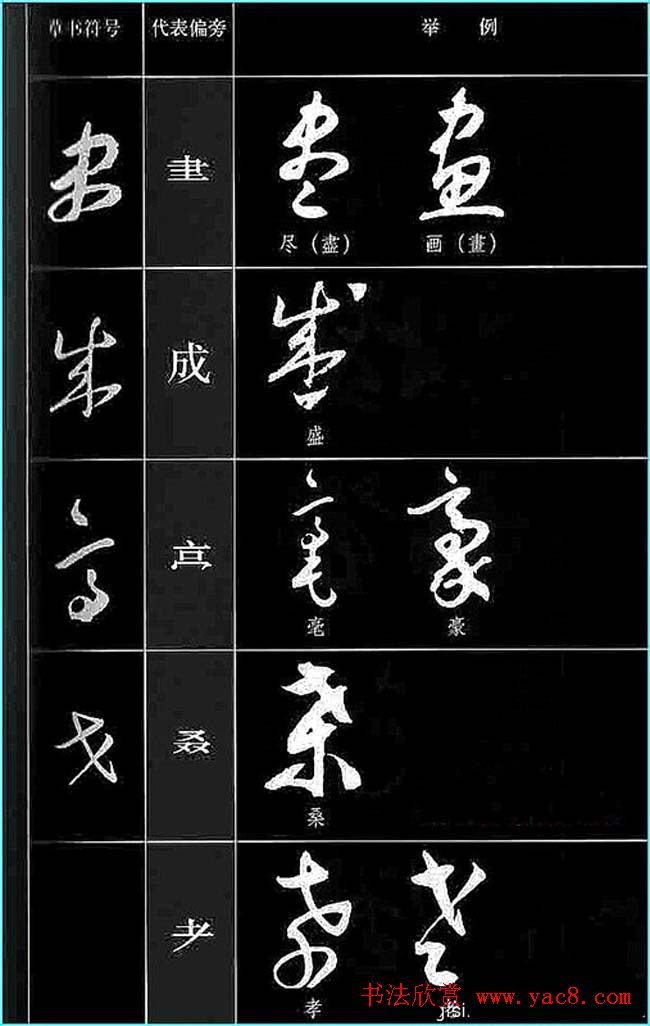 草书符号 代表偏旁 举 例
尽（盡） 画（畫）
成
盛
毫 豪
叒
桑
耂
孝
书法欣赏 www.yac8.com